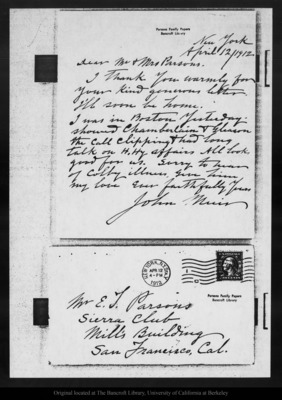 Parsons Family Papers
Bancroft Library
New York
April 12, 1912.
Dear Mr & Mrs Parsons.
I thank you warmly for
your kind generous letter
I'll soon be home.
I was in Boston Yesterday
showed Chamberlain & Gleason
the Call Clipping & had long
talk on H. Hy affairs All look
good for us. Sorry to hear
of Colby illness, Give him
my love Ever faithfully Yours
John Muir
NEW YORK, N.Y.
APR 12
4-PM
1912
Parsons Family Papers
Bancroft Library
Mr E. T. Parsons
Sierra Club
Mills Building
San Francisco, Cal.
Original located at The Bancroft Library, University of California at Berkeley